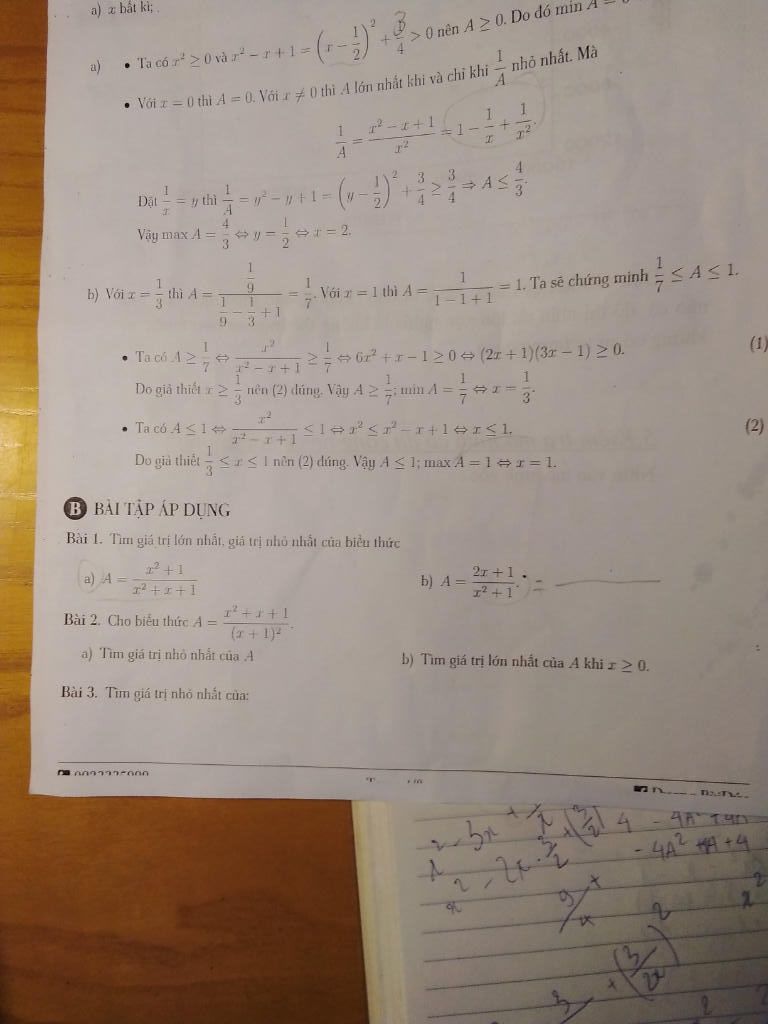 a) x bất kì; .
a) • Ta có x² ≥ 0 và x² − x + 1 = (x − 1/2)² + 3/4 > 0 nên A ≥ 0. Do đó min A =
• Với x = 0 thì A = 0. Với x ≠ 0 thì A lớn nhất khi và chỉ khi 1/A nhỏ nhất. Mà
1/A = (x² − x + 1)/x² = 1 − 1/x + 1/x².
Đặt 1/x = y thì 1/A = y² − y + 1 = (y − 1/2)² + 3/4 ≥ 3/4 ⇒ A ≤ 4/3.
Vậy max A = 4/3 ⇔ y = 1/2 ⇔ x = 2.
b) Với x = 1/3 thì A = (1/9)/(1/9 − 1/3 + 1) = 1/7. Với x = 1 thì A = 1/(1 − 1 + 1) = 1. Ta sẽ chứng minh 1/7 ≤ A ≤ 1.
• Ta có A ≥ 1/7 ⇔ x²/(x² − x + 1) ≥ 1/7 ⇔ 6x² + x − 1 ≥ 0 ⇔ (2x + 1)(3x − 1) ≥ 0. (1)
Do giả thiết x ≥ 1/3 nên (2) đúng. Vậy A ≥ 1/7; min A = 1/7 ⇔ x = 1/3.
• Ta có A ≤ 1 ⇔ x²/(x² − x + 1) ≤ 1 ⇔ x² ≤ x² − x + 1 ⇔ x ≤ 1. (2)
Do giả thiết 1/3 ≤ x ≤ 1 nên (2) đúng. Vậy A ≤ 1; max A = 1 ⇔ x = 1.
B BÀI TẬP ÁP DỤNG
Bài 1. Tìm giá trị lớn nhất, giá trị nhỏ nhất của biểu thức
a) A = (x² + 1)/(x² + x + 1) b) A = (2x + 1)/(x² + 1). =
Bài 2. Cho biểu thức A = (x² + x + 1)/(x + 1)².
a) Tìm giá trị nhỏ nhất của A b) Tìm giá trị lớn nhất của A khi x ≥ 0.
Bài 3. Tìm giá trị nhỏ nhất của:
− 4A² + 4A + 4